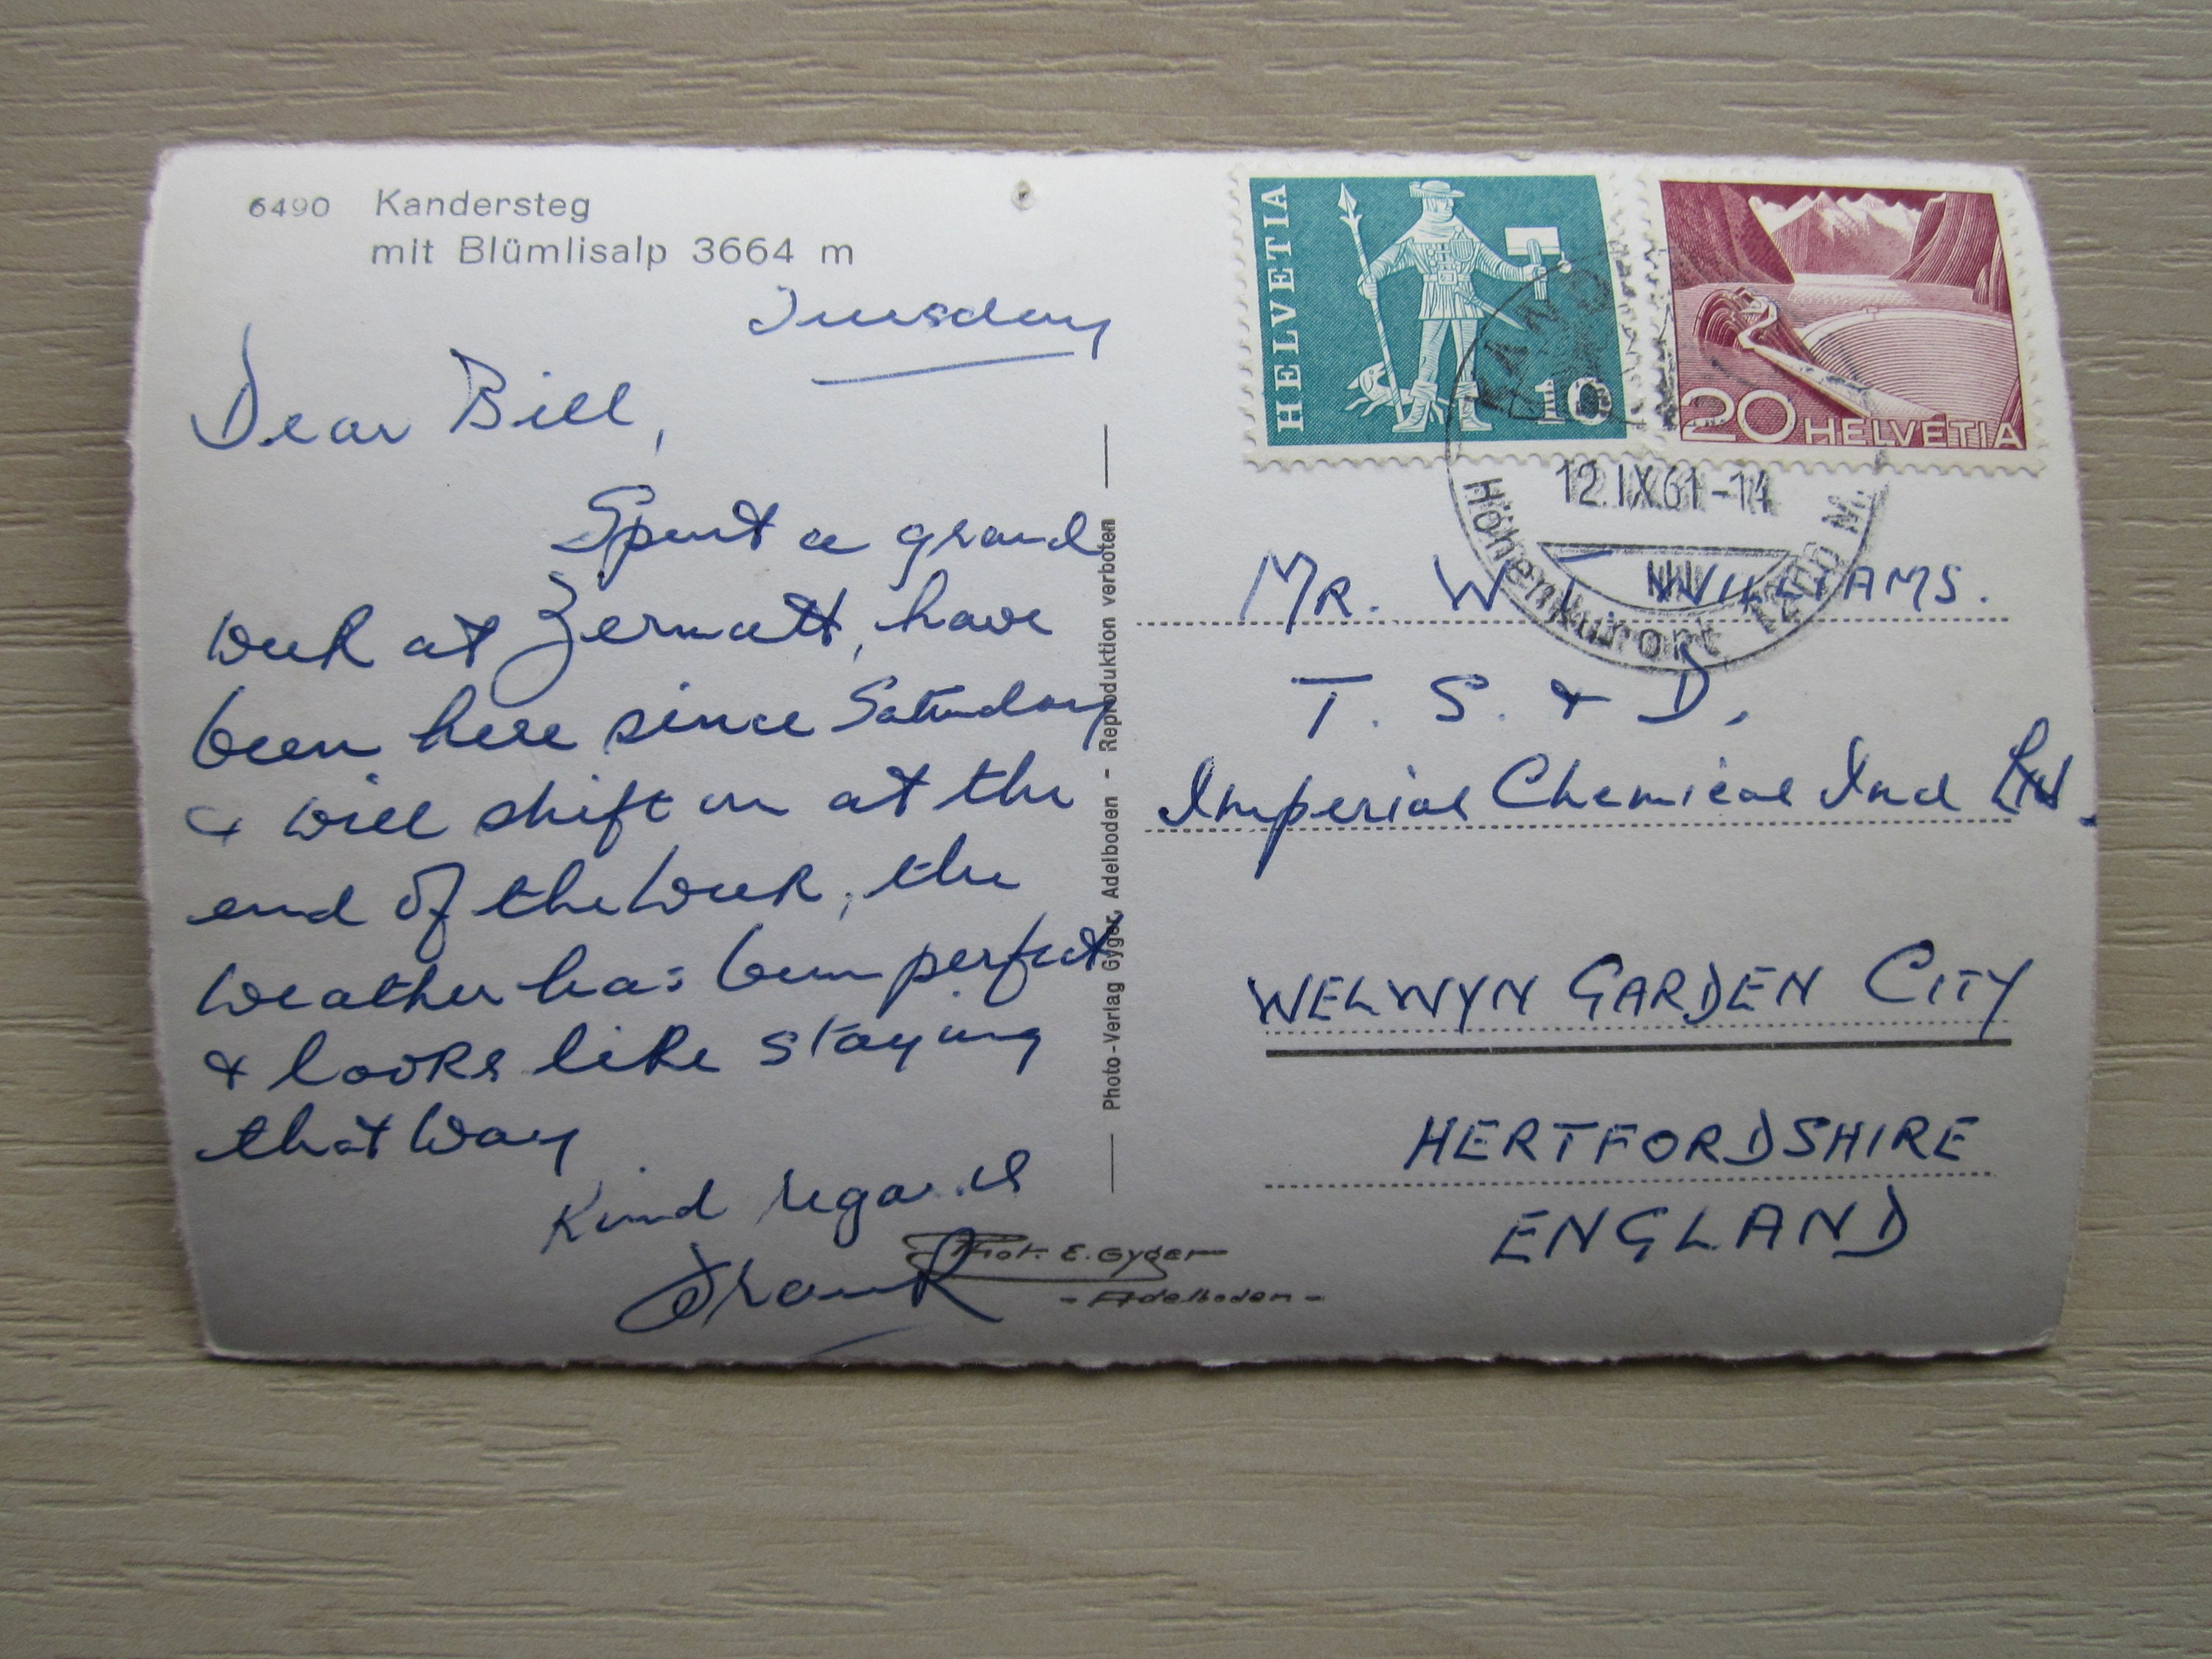 6490 Kandersteg
mit Blümlisalp 3664 m
Tuesday
Dear Bill,
Spent a grand
week at Zermatt, have
been here since Saturday
& will shift on at the
end of the week, the
weather has been perfect
& looks like staying
that way
Kind regards
Frank
Phot. E. Gyger
- Adelboden -
Photo-Verlag Gyger, Adelboden - Reproduktion verboten
HELVETIA
10
20 HELVETIA
12.IX.61-14
Höhenkurort 1200 M.
MR. W WILLIAMS.
T. S. & D.
Imperial Chemical Ind Ltd.
WELWYN GARDEN CITY
HERTFORDSHIRE
ENGLAND